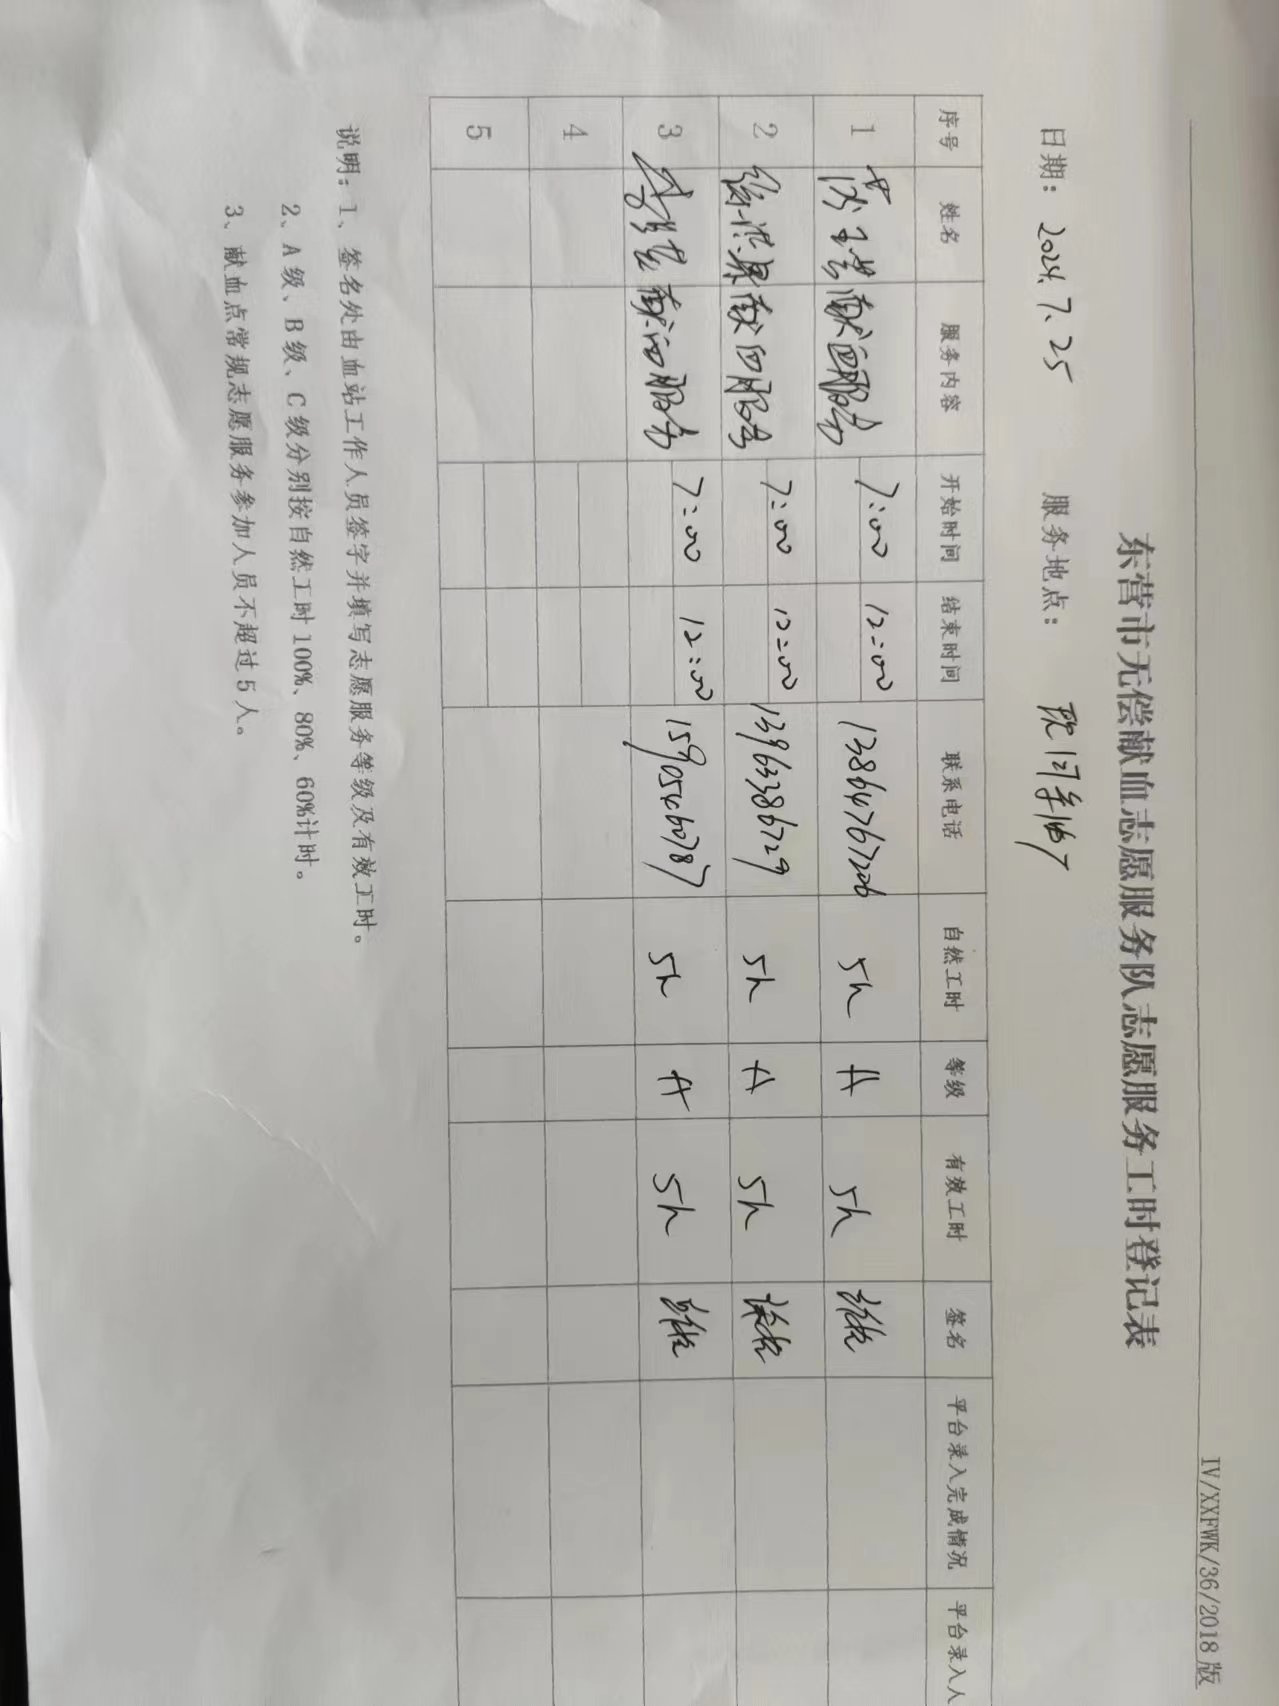 IV/XXFWK/36/2018版
东营市无偿献血志愿服务队志愿服务工时登记表
日期： 2024.7.25 服务地点：
序号 姓名 服务内容 开始时间 结束时间 联系电话 自然工时 等级 有效工时 签名 平台录入完成情况 平台录入人
1 献血服务 7:00 12:00 13864767206 5h A 5h
2 献血服务 7:00 12:00 13963386729 5h A 5h
3 献血服务 7:00 12:00 15905460787 5h A 5h
4
5
说明：1、签名处由血站工作人员签字并填写志愿服务等级及有效工时。
2、A级、B级、C级分别按自然工时100%、80%、60%计时。
3、献血点常规志愿服务参加人员不超过5人。